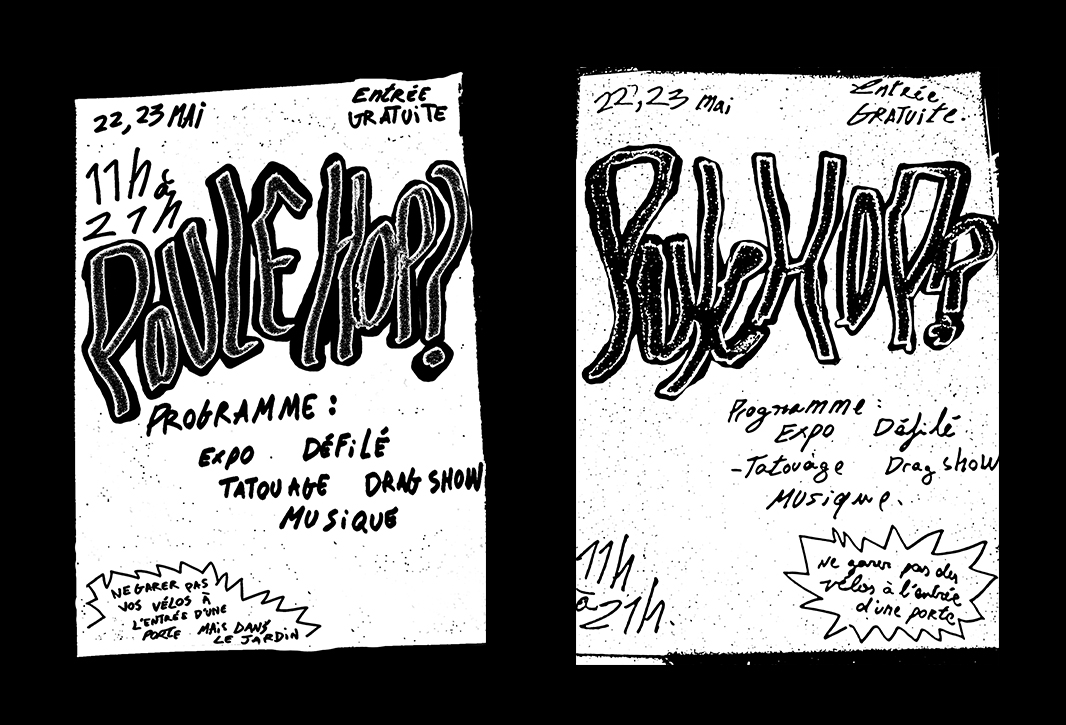 22, 23 MAI
ENTRÉE
GRATUITE
11h à
21h
POULE HOP?
PROGRAMME :
EXPO DÉFILÉ
TATOUAGE DRAG SHOW
MUSIQUE
NE GARER PAS
VOS VÉLOS À
L'ENTRÉE D'UNE
PORTE MAIS DANS
LE JARDIN
22, 23 Mai
Entrée
GRATUITE.
Poule HOP?
Programme :
EXPO Défilé
-Tatouage Drag show
MUSIQUE.
11h
à
21h.
Ne garer pas des
vélos à l'entrée
d'une porte